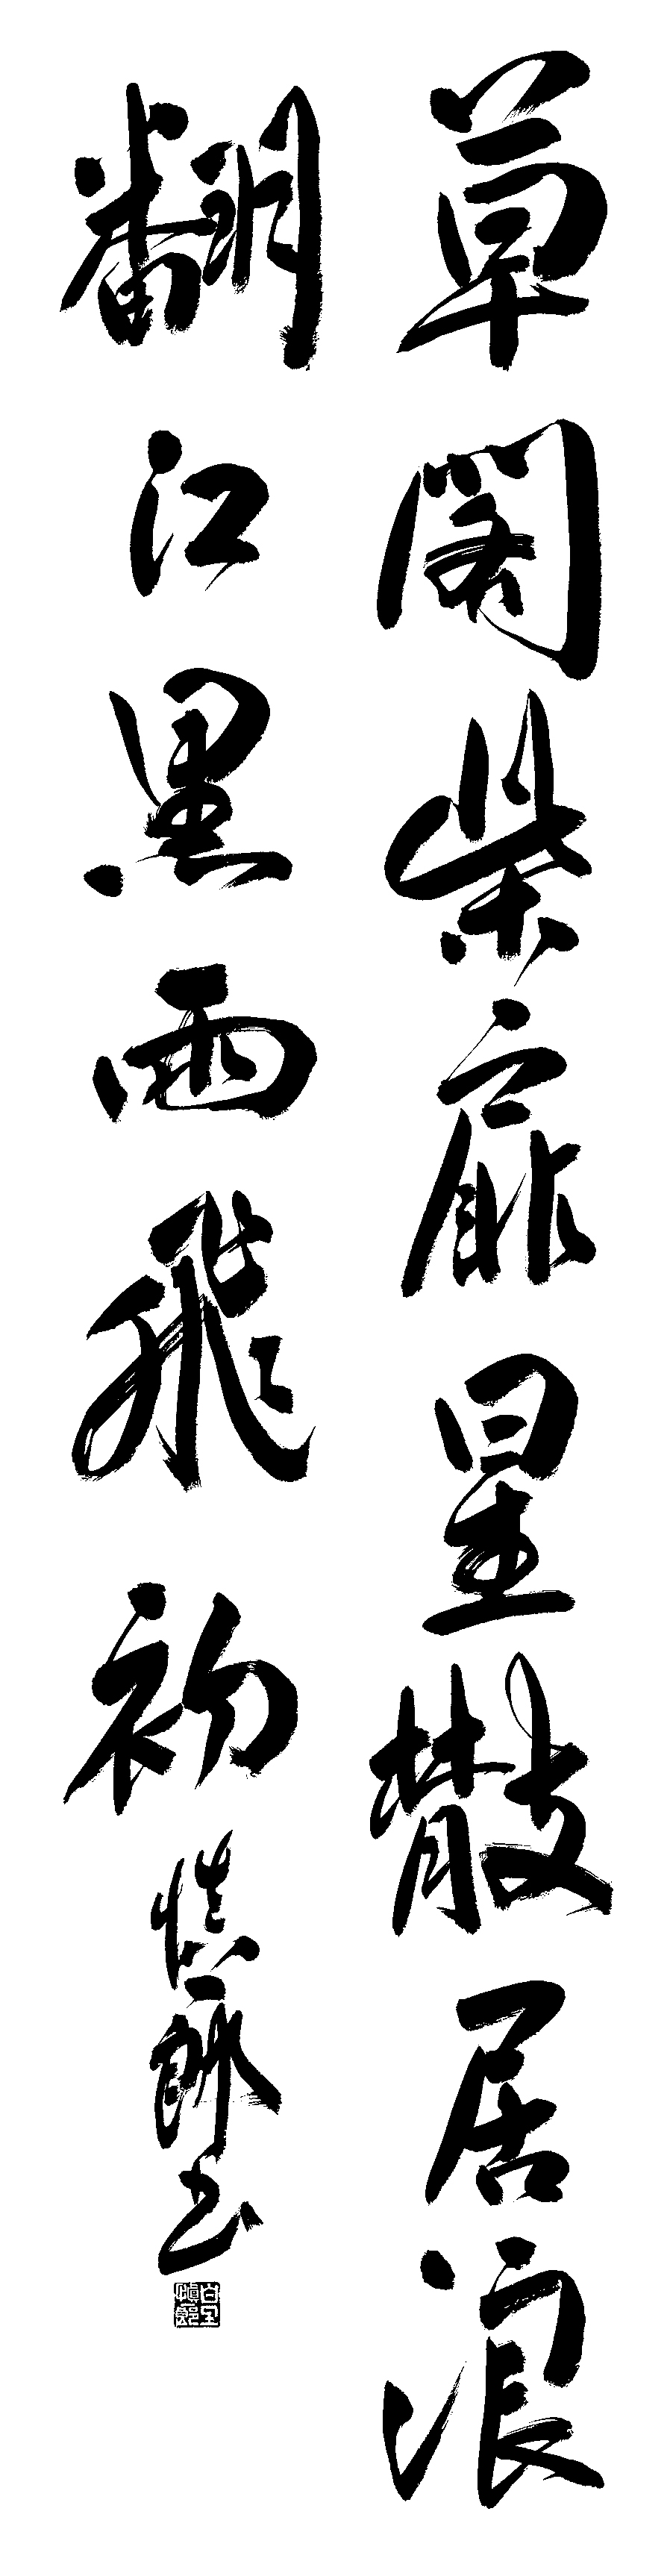 草閣柴扉星散居浪
翻江黒雨飛初
慎郎書